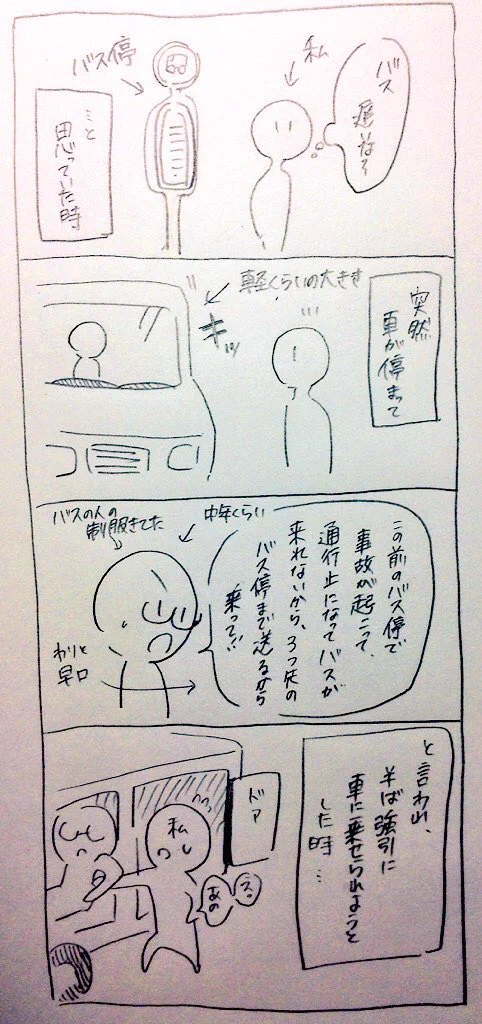 バス
遅いなぁ
私
バス停
…と
思っていた時
突然
車が停まって
軽くらいの大きさ
キッ
この前のバス停で
事故が起こって、
通行止になってバスが
来れないから、3つ先の
バス停まで送るから
乗って!!
中年くらい
バスの人の
制服きてた
わりと
早口
と言われ、
半ば強引に
車に乗せられようと
した時…
ドア
私
え、
あの